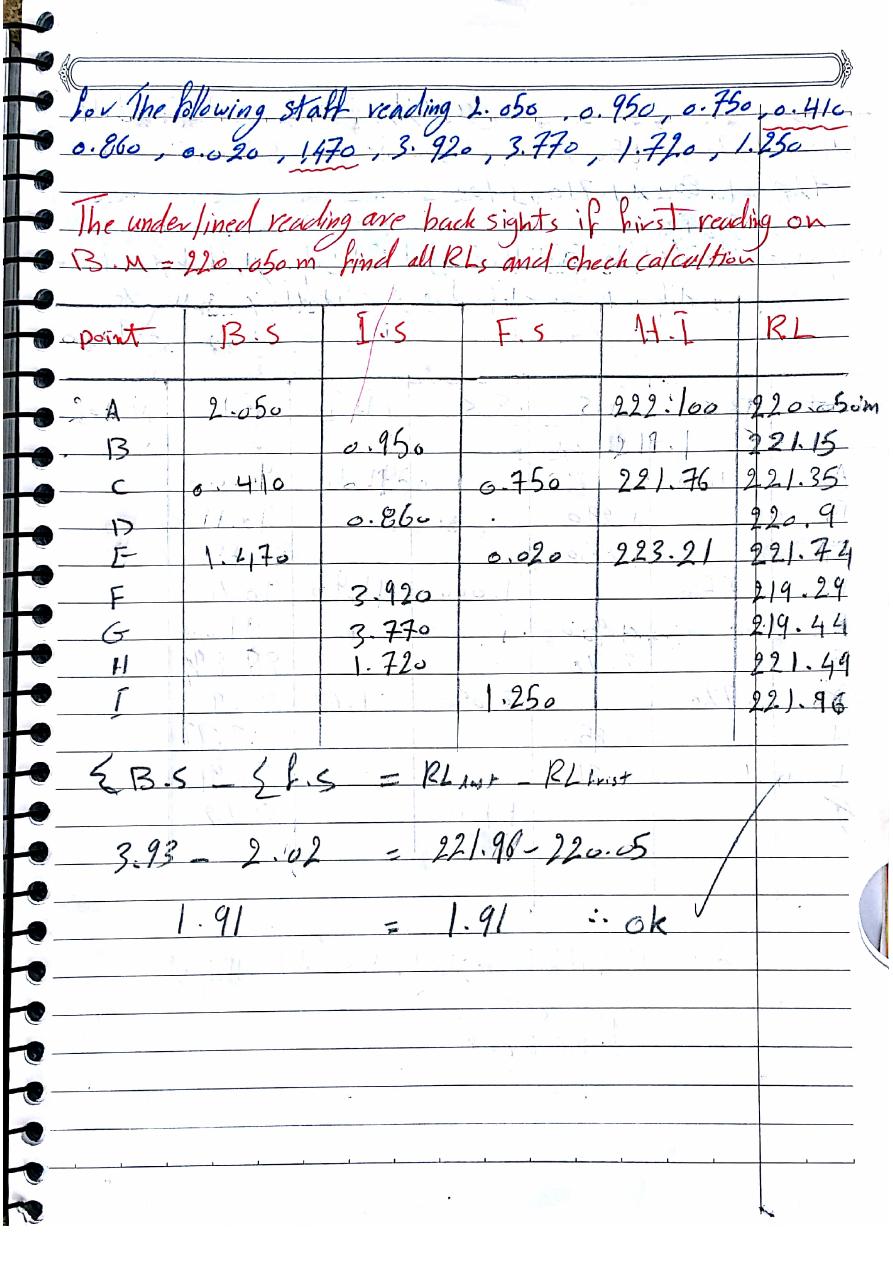 for The following staff reading 2.050, 0.950, 0.750, 0.410
0.860, 0.020, 1470, 3.920, 3.770, 1.720, 1.250
The underlined reading are back sights if first reading on
B.M = 220.050m find all RLs and check calcultion
point B.S I.S F.S H.I RL
A 2.050 222.100 220.050m
B 0.950 221.15
C 0.410 0.750 221.76 221.35
D 0.860 220.9
E 1.470 0.020 223.21 221.74
F 3.920 219.29
G 3.770 219.44
H 1.720 221.49
I 1.250 221.96
{B.S - {f.S = RL Last - RL first
3.93 - 2.02 = 221.96 - 220.05
1.91 = 1.91 ∴ ok ✓